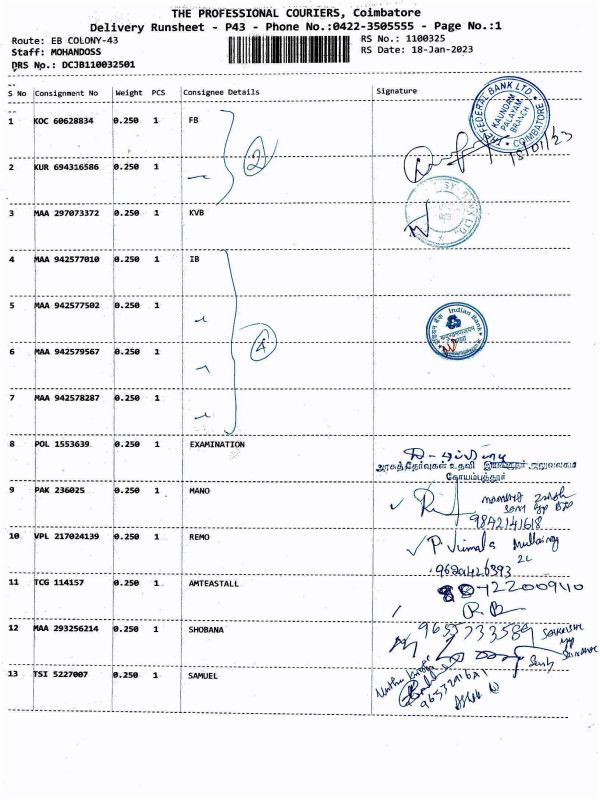 THE PROFESSIONAL COURIERS, Coimbatore
Delivery Runsheet - P43 - Phone No.:0422-3505555 - Page No.:1
Route: EB COLONY-43
RS No.: 1100325
Staff: MOHANDOSS
RS Date: 18-Jan-2023
DRS No.: DCJB110032501
S No Consignment No Weight PCS Consignee Details Signature
1 KOC 60628834 0.250 1 FB
THE FEDERAL BANK LTD. KAUNDAM PALAYAM BRANCH COIMBATORE
18/01/23
2
2 KUR 694316586 0.250 1
3 MAA 297073372 0.250 1 KVB
4 MAA 942577010 0.250 1 IB
5 MAA 942577502 0.250 1
Indian Bank
4
6 MAA 942579567 0.250 1
7 MAA 942578287 0.250 1
8 POL 1553639 0.250 1 EXAMINATION
அரசுத்தேர்வுகள் உதவி இயக்குநர் அலுவலகம்
கோயம்புத்தூர்
9 PAK 236025 0.250 1 MANO
9842141618
10 VPL 217024139 0.250 1 REMO
P. Vimala
11 TCG 114157 0.250 1 AMTEASTALL
12 MAA 293256214 0.250 1 SHOBANA
9655333589
13 TSI 5227007 0.250 1 SAMUEL